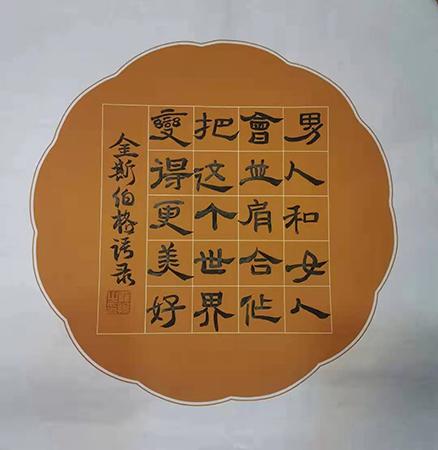 男人和女人
會並肩合作
把这个世界
變得更美好
金斯伯格语录